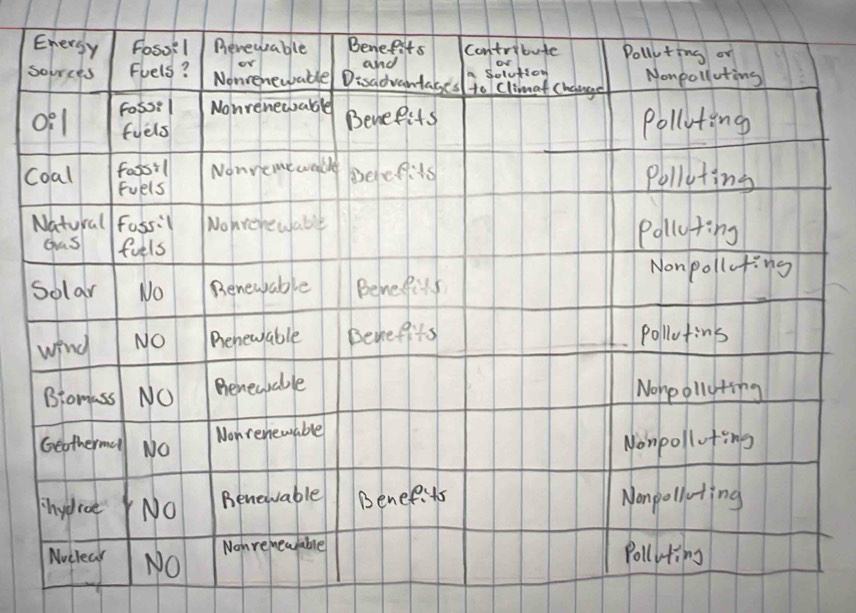 Energy Sources | Fossil Fuels? | Renewable or Nonrenewable | Benefits and Disadvantages | Contribute or a Solution to Climat Change | Polluting or Nonpolluting
Oil | Fossil fuels | Nonrenewable | Benefits | | Polluting
Coal | Fossil Fuels | Nonrenewable | Benefits | | Polluting
Natural Gas | Fossil fuels | Nonrenewable | | | Polluting
Solar | NO | Renewable | Benefits | | Nonpolluting
Wind | NO | Renewable | Benefits | | Polluting
Biomass | NO | Renewable | | | Nonpolluting
Geothermal | NO | Nonrenewable | | | Nonpolluting
| NO | Renewable | Benefits | | Nonpolluting
Nuclear | NO | Nonrenewable | | | Polluting